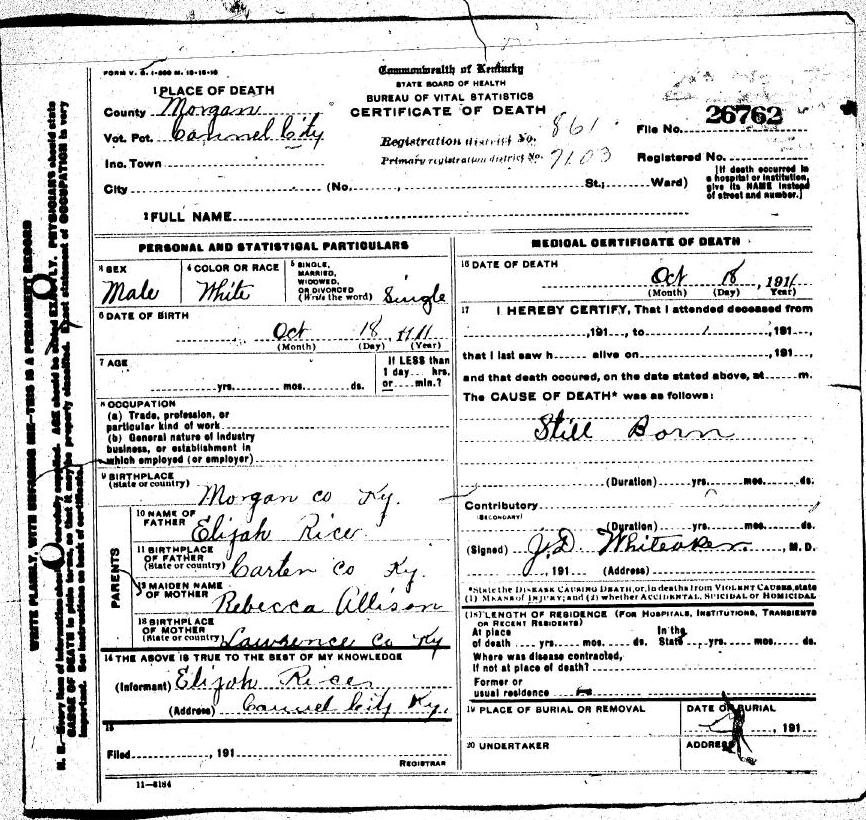 FORM V. S. 1-
Commonwealth of Kentucky
STATE BOARD OF HEALTH
BUREAU OF VITAL STATISTICS
CERTIFICATE OF DEATH
1 PLACE OF DEATH
County Morgan
Vot. Pct. Cannel City
Inc. Town
City (No. St.; Ward)
Registration district No. 861
Primary registration district No. 7103
File No. 26762
Registered No.
[If death occurred in
a hospital or institution,
give its NAME instead
of street and number.]
2 FULL NAME
PERSONAL AND STATISTICAL PARTICULARS
3 SEX
Male
4 COLOR OR RACE
White
5 SINGLE,
MARRIED,
WIDOWED,
OR DIVORCED
(Write the word) Single
6 DATE OF BIRTH
Oct 18, 1911
(Month) (Day) (Year)
7 AGE
yrs. mos. ds.
If LESS than
1 day hrs.
or min.?
8 OCCUPATION
(a) Trade, profession, or
particular kind of work
(b) General nature of industry
business, or establishment in
which employed (or employer)
9 BIRTHPLACE
(State or country) Morgan co Ky.
PARENTS
10 NAME OF
FATHER Elijah Rice
11 BIRTHPLACE
OF FATHER
(State or country) Carter co Ky.
12 MAIDEN NAME
OF MOTHER Rebecca Allison
13 BIRTHPLACE
OF MOTHER
(State or country) Lawrence Co Ky
14 THE ABOVE IS TRUE TO THE BEST OF MY KNOWLEDGE
(Informant) Elijah Rice
(Address) Cannel City Ky.
15
Filed , 191
REGISTRAR
11-5184
MEDICAL CERTIFICATE OF DEATH
16 DATE OF DEATH
Oct 18, 1911
(Month) (Day) (Year)
17 I HEREBY CERTIFY, That I attended deceased from
,191 , to ,191 ,
that I last saw h alive on ,191 ,
and that death occured, on the date stated above, at m.
The CAUSE OF DEATH* was as follows:
Still Born
(Duration) yrs. mos. ds.
Contributory
(SECONDARY)
(Duration) yrs. mos. ds.
(Signed) J.D. Whiteaker , M.D.
, 191 (Address)
*State the DISEASE CAUSING DEATH, or, in deaths from VIOLENT CAUSES, state
(1) MEANS of INJURY; and (2) whether ACCIDENTAL, SUICIDAL or HOMICIDAL
(18) LENGTH OF RESIDENCE (FOR HOSPITALS, INSTITUTIONS, TRANSIENTS
OR RECENT RESIDENTS)
At place
of death yrs. mos. ds.
In the
State yrs. mos. ds.
Where was disease contracted,
If not at place of death?
Former or
usual residence
19 PLACE OF BURIAL OR REMOVAL
DATE OF BURIAL
, 191
20 UNDERTAKER
ADDRESS
WRITE PLAINLY, WITH UNFADING INK—THIS IS A PERMANENT RECORD
N. B.—Every item of information should be carefully supplied. AGE should be stated EXACTLY. PHYSICIANS should state
CAUSE OF DEATH in plain terms, so that it may be properly classified. Exact statement of OCCUPATION is very
important. See instructions on back of certificate.